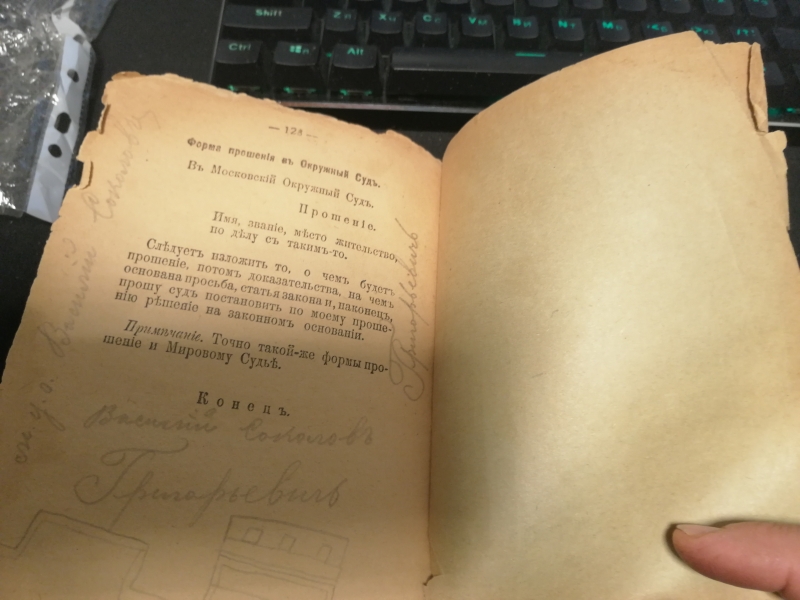 — 124 —
Форма прошенія въ Окружный Судъ.
Въ Московскій Окружный Судъ.
Прошеніе.
Имя, званіе, мѣсто жительство,
по дѣлу съ такимъ-то.
Слѣдуетъ изложить то, о чемъ будетъ
прошеніе, потомъ доказательства, на чемъ
основана просьба, статья закона и, наконецъ,
прошу судъ постановить по моему проше-
нію рѣшеніе на законномъ основаніи.
Примѣчаніе. Точно такой-же формы про-
шеніе и Мировому Судьѣ.
Конецъ.
Василій Соколовъ
Григорьевичъ
Григорьевичъ
Василій Соколовъ
Shift
Z Я
X Ч
C С
V М
B И
N Т
M Ь
Ctrl
Alt